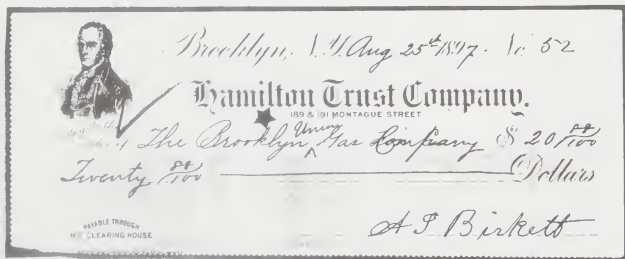 Brooklyn, N.Y. Aug 25th 1897. No. 52
Hamilton Trust Company.
189 & 191 MONTAGUE STREET
The Brooklyn Union Gas Company $ 20 88/100
Twenty 88/100 Dollars
PAYABLE THROUGH
CLEARING HOUSE
A S Birkett